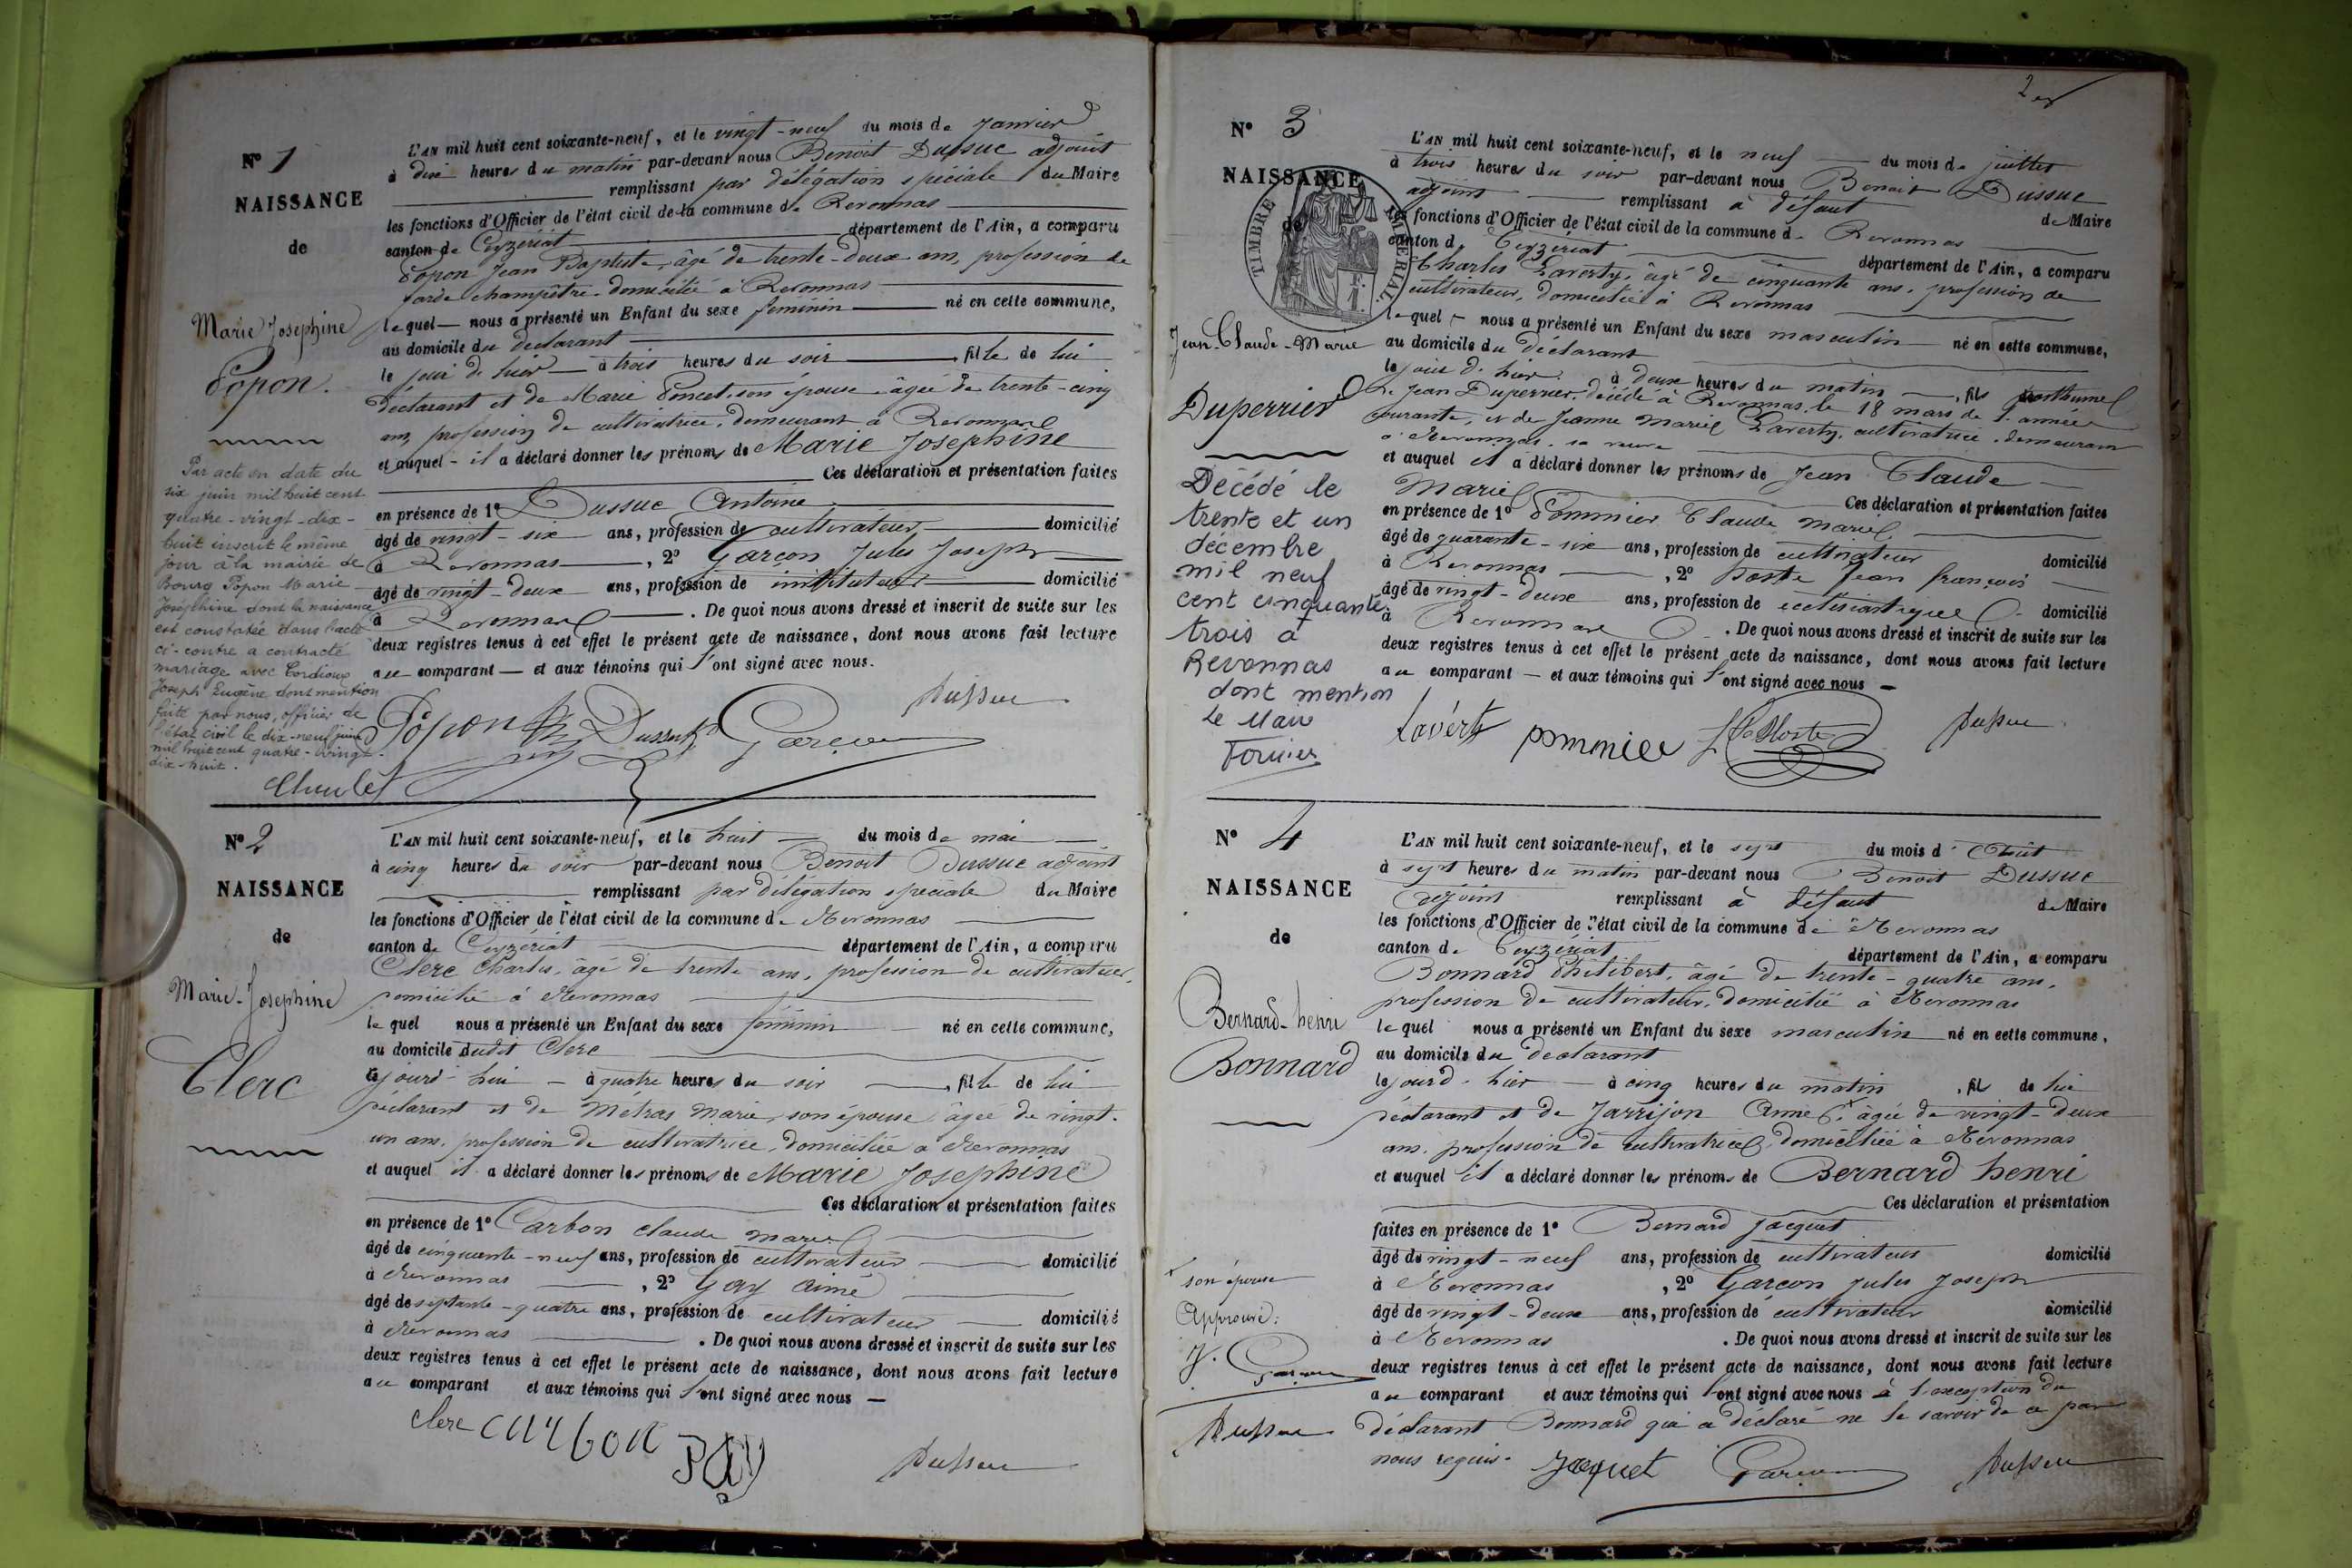 N° 1
NAISSANCE
de
Marie Josephine
Popon.
Par acte en date du
six juin mil huit cent
quatre-vingt-dix-
huit inscrit le même
jour à la mairie de
Bourg Popon Marie
Joséphine dont la naissance
est constatée dans l'acte
ci-contre a contracté
mariage avec Cordioux
Joseph Eugène dont mention
faite par nous, officier de
l'état civil le dix-neuf juin
mil huit cent quatre-vingt-
dix-huit.
L'AN mil huit cent soixante-neuf, et le vingt-neuf du mois de Janvier
à dix heures du matin par-devant nous Benoit Dussuc adjoint
remplissant par délégation speciale du Maire
les fonctions d'Officier de l'état civil de la commune de Revonnas
canton de Ceyzériat département de l'Ain, a comparu
Popon Jean Baptiste, âgé de trente-deux ans, profession de
garde champêtre, domicilié à Revonnas
lequel nous a présenté un Enfant du sexe féminin né en cette commune,
au domicile du déclarant
le jour d'hier à trois heures du soir, fille de lui
déclarant et de Marie Poncet, son épouse, âgée de trente-cinq
ans, profession de cultivatrice, demeurant à Revonnas
et auquel il a déclaré donner les prénoms de Marie Josephine
Ces déclaration et présentation faites
en présence de 1° Dussuc Antoine
âgé de vingt-six ans, profession de cultivateur domicilié
à Revonnas, 2° Garçon Jules Joseph
âgé de vingt-deux ans, profession de instituteur domicilié
à Revonnas. De quoi nous avons dressé et inscrit de suite sur les
deux registres tenus à cet effet le présent acte de naissance, dont nous avons fait lecture
au comparant et aux témoins qui l'ont signé avec nous.
Popon Dussuc Garçon Dussuc
N° 2
NAISSANCE
de
Marie-Josephine
Clerc
L'AN mil huit cent soixante-neuf, et le huit du mois de mai
à cinq heures du soir par-devant nous Benoit Dussuc adjoint
remplissant par délégation speciale du Maire
les fonctions d'Officier de l'état civil de la commune de Revonnas
canton de Ceyzériat département de l'Ain, a comparu
Clerc Charles, âgé de trente ans, profession de cultivateur,
domicilié à Revonnas
lequel nous a présenté un Enfant du sexe féminin né en cette commune,
au domicile dudit Clerc
le jourd'hui à quatre heures du soir, fille de lui
déclarant et de Métras Marie, son épouse, âgée de vingt-
un ans, profession de cultivatrice, domiciliée à Revonnas
et auquel il a déclaré donner les prénoms de Marie Josephine
Ces déclaration et présentation faites
en présence de 1° Carbon Claude Marie
âgé de cinquante-neuf ans, profession de cultivateur domicilié
à Revonnas, 2° Gay Aimé
âgé de septante-quatre ans, profession de cultivateur domicilié
à Revonnas. De quoi nous avons dressé et inscrit de suite sur les
deux registres tenus à cet effet le présent acte de naissance, dont nous avons fait lecture
au comparant et aux témoins qui l'ont signé avec nous
Clerc carbon Dussuc
2
N° 3
NAISSANCE
de
TIMBRE IMPÉRIAL
Jean-Claude-Marie
Duperrier
Décédé le
trente et un
décembre
mil neuf
cent cinquante
trois à
Revonnas
dont mention
Le Maire
L'AN mil huit cent soixante-neuf, et le neuf du mois de juillet
à trois heures du soir par-devant nous Benoit Dussuc
adjoint remplissant à défaut de Maire
les fonctions d'Officier de l'état civil de la commune de Revonnas
canton de Ceyzériat département de l'Ain, a comparu
Charles Laverty, âgé de cinquante ans, profession de
cultivateur, domicilié à Revonnas
lequel nous a présenté un Enfant du sexe masculin né en cette commune,
au domicile du déclarant
le jour d'hier à deux heures du matin, fils posthume
de Jean Duperrier, décédé à Revonnas, le 18 mars de l'année
courante, et de Jeanne Marie Laverty, cultivatrice, demeurant
à Revonnas, sa veuve
et auquel il a déclaré donner les prénoms de Jean Claude
Marie Ces déclaration et présentation faites
en présence de 1° Pommier Claude Marie
âgé de quarante-six ans, profession de cultivateur domicilié
à Revonnas, 2° Jean François
âgé de vingt-deux ans, profession de ecclésiastique domicilié
à Revonnas. De quoi nous avons dressé et inscrit de suite sur les
deux registres tenus à cet effet le présent acte de naissance, dont nous avons fait lecture
au comparant et aux témoins qui l'ont signé avec nous
pommier Dussuc
N° 4
NAISSANCE
de
Bernard-henri
Bonnard
L'AN mil huit cent soixante-neuf, et le sept du mois d'Août
à sept heures du matin par-devant nous Benoit Dussuc
adjoint remplissant à défaut de Maire
les fonctions d'Officier de l'état civil de la commune de Revonnas
canton de Ceyzériat département de l'Ain, a comparu
Bonnard Philibert, âgé de trente-quatre ans,
profession de cultivateur, domicilié à Revonnas
lequel nous a présenté un Enfant du sexe masculin né en cette commune,
au domicile du déclarant
le jour d'hier à cinq heures du matin, fils de lui
déclarant et de Jarrijon Anne, âgée de vingt-deux
ans, profession de cultivatrice, domiciliée à Revonnas
et auquel il a déclaré donner les prénoms de Bernard henri
Ces déclaration et présentation
faites en présence de 1° Bernard Jacquet
âgé de vingt-neuf ans, profession de cultivateur domicilié
à Revonnas, 2° Garçon Jules Joseph
âgé de vingt-deux ans, profession de cultivateur domicilié
à Revonnas. De quoi nous avons dressé et inscrit de suite sur les
deux registres tenus à cet effet le présent acte de naissance, dont nous avons fait lecture
au comparant et aux témoins qui l'ont signé avec nous à l'exception du
déclarant Bonnard qui a déclaré ne le savoir de ce par
nous requis. Jacquet Garçon Dussuc
son épouse
Approuvé:
J. Garçon
Dussuc